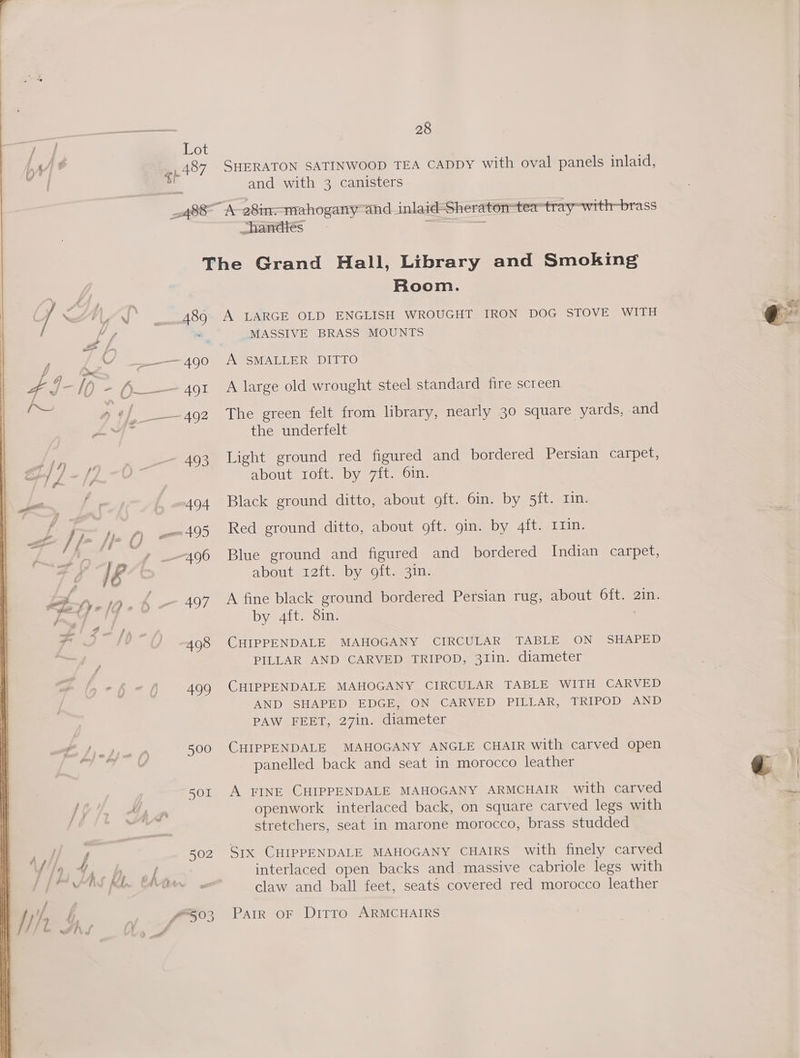 28
Lot
487 SHERATON SATINWOOD TEA CADDY with oval panels inlaid,
and with 3 canisters
488 A 28in. mahogany and inlaid Sheraton tea tray with brass
handles
The Grand Hall, Library and Smoking
Room.
489 A LARGE OLD ENGLISH WROUGHT IRON DOG STOVE WITH
MASSIVE BRASS MOUNTS
490 A SMALLER DITTO
491 A large old wrought steel standard fire screen
492 The green felt from library, nearly 30 square yards, and
the underfelt
493 Light ground red figured and bordered Persian carpet,
about 10ft. by 7ft. 6in.
494 Black ground ditto, about 9ft. 6in. by 5ft. 1in.
495 Red ground ditto, about 9ft. 9in. by 4ft. 11in.
496 Blue ground and figured and bordered Indian carpet,
about 12ft. by 9ft. 3in.
497 A fine black ground bordered Persian rug, about 6ft. 2in.
by 4ft. 8in.
498 CHIPPENDALE MAHOGANY CIRCULAR TABLE ON SHAPED
PILLAR AND CARVED TRIPOD, 31in. diameter
499 CHIPPENDALE MAHOGANY CIRCULAR TABLE WITH CARVED
AND SHAPED EDGE, ON CARVED PILLAR, TRIPOD AND
PAW FEET, 27in. diameter
500 CHIPPENDALE MAHOGANY ANGLE CHAIR with carved open
panelled back and seat in morocco leather
501 A FINE CHIPPENDALE MAHOGANY ARMCHAIR with carved
openwork interlaced back, on square carved legs with
stretchers, seat in marone morocco, brass studded
502 SIX CHIPPENDALE MAHOGANY CHAIRS with finely carved
interlaced open backs and massive cabriole legs with
claw and ball feet, seats covered red morocco leather
503 PAIR OF DITTO ARMCHAIRS